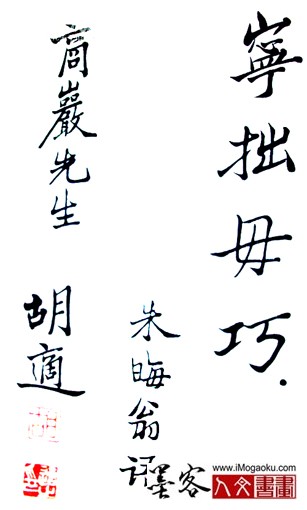 寧拙毋巧.
朱晦翁
墨客
商巖先生
胡適
www.iMogaoku.com
人文書畫